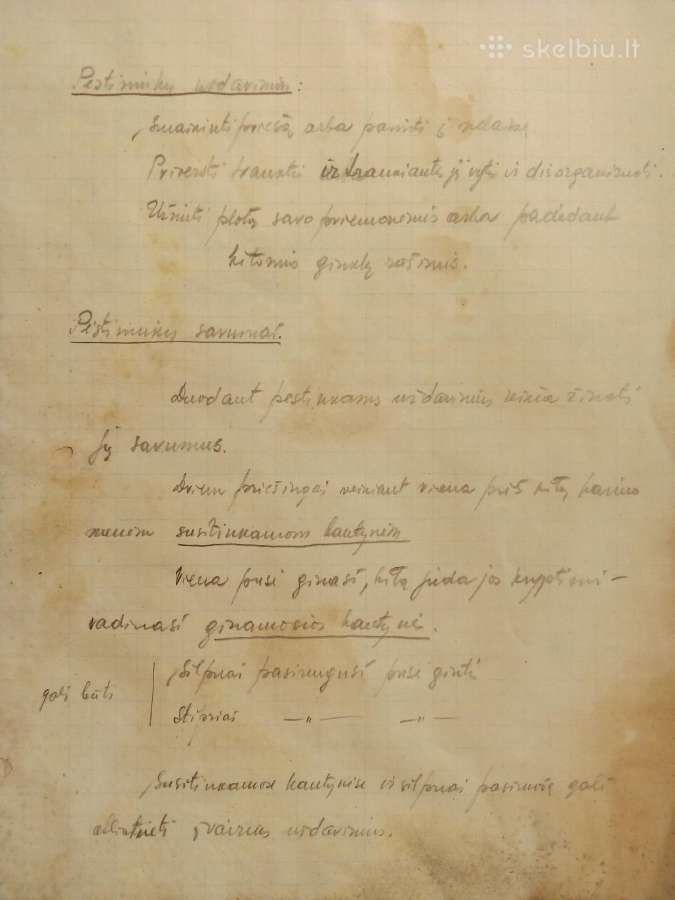 skelbiu.lt
Pėstininkų uždavinius:
Sunaikinti priešą arba paimti į nelaisvę
Priversti trauktis ir traukiantį jį vyti ir disorganizuoti.
Užimti plotą savo priemonėmis arba padedant
kitomis ginklų rūšimis.
Pėstininkų savumai.
Duodant pėstininkams uždavinius reikia žinoti
jų savumus.
Dviem priešingai veikiant viena prieš kitą kariuo
menėm susitinkamom kautynėm
Viena pusė ginasi, kita juda jos kryptimi –
vadinasi ginamosios kautynės.
gali būti
Silpnai pasirengusi pusė gintis
Stipriai —„— —„—
Susitinkamose kautynėse ir silpnai pasiruošę gali
atlikti įvairius uždavinius.